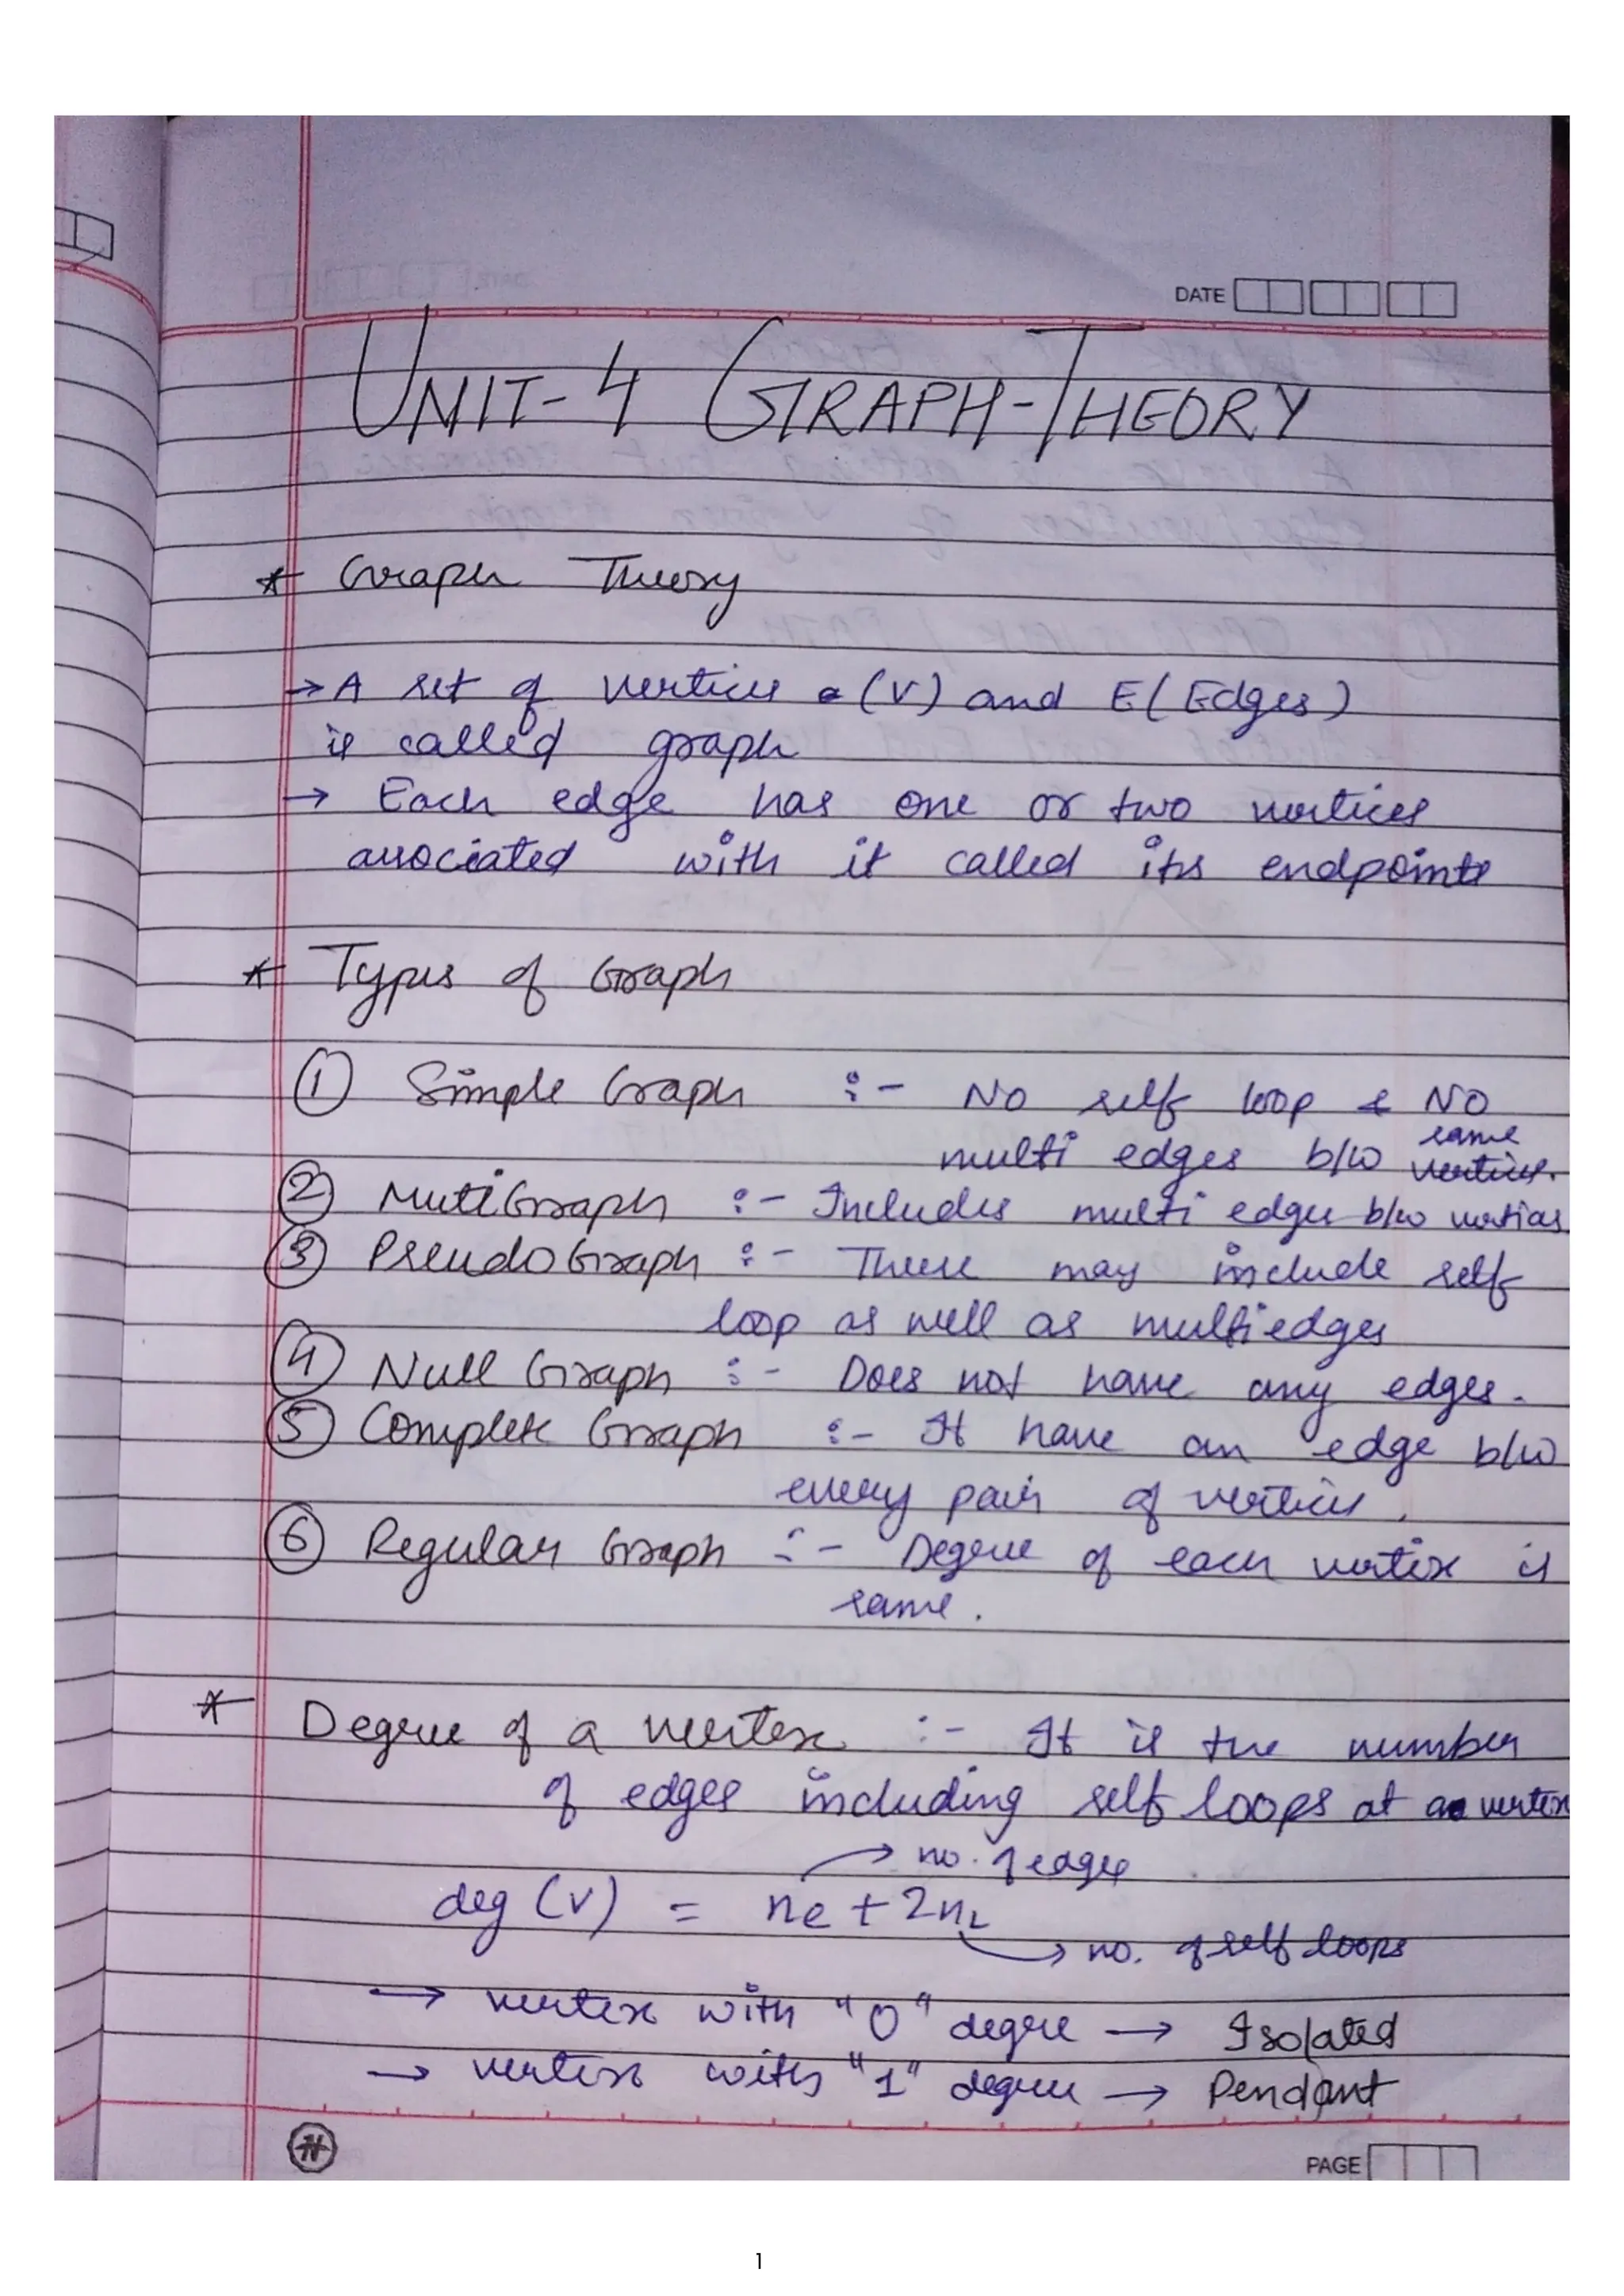 DATE
UNIT-4 GRAPH-THEORY
* Graph Theory
→ A set of vertices (V) and E (Edges)
is called graph
→ Each edge has one or two vertices
associated with it called its endpoints
* Types of Graph
① Simple Graph :- No self loop & NO
multi edges b/w same vertices.
② MutiGraph :- Includes multi edges b/w vertices
③ PseudoGraph :- There may include self
loop as well as multiedges
④ Null Graph :- Does not have any edges.
⑤ Complete Graph :- It have an edge b/w
every pair of vertices.
⑥ Regular Graph :- Degree of each vertix is
same.
* Degree of a vertex :- It is the number
of edges including self loops at a vertex
→ no. of edges
deg (V) = ne + 2nL
→ no. of self loops
→ vertex with "0" degree → Isolated
→ vertex with "1" degree → Pendant
N
PAGE
1